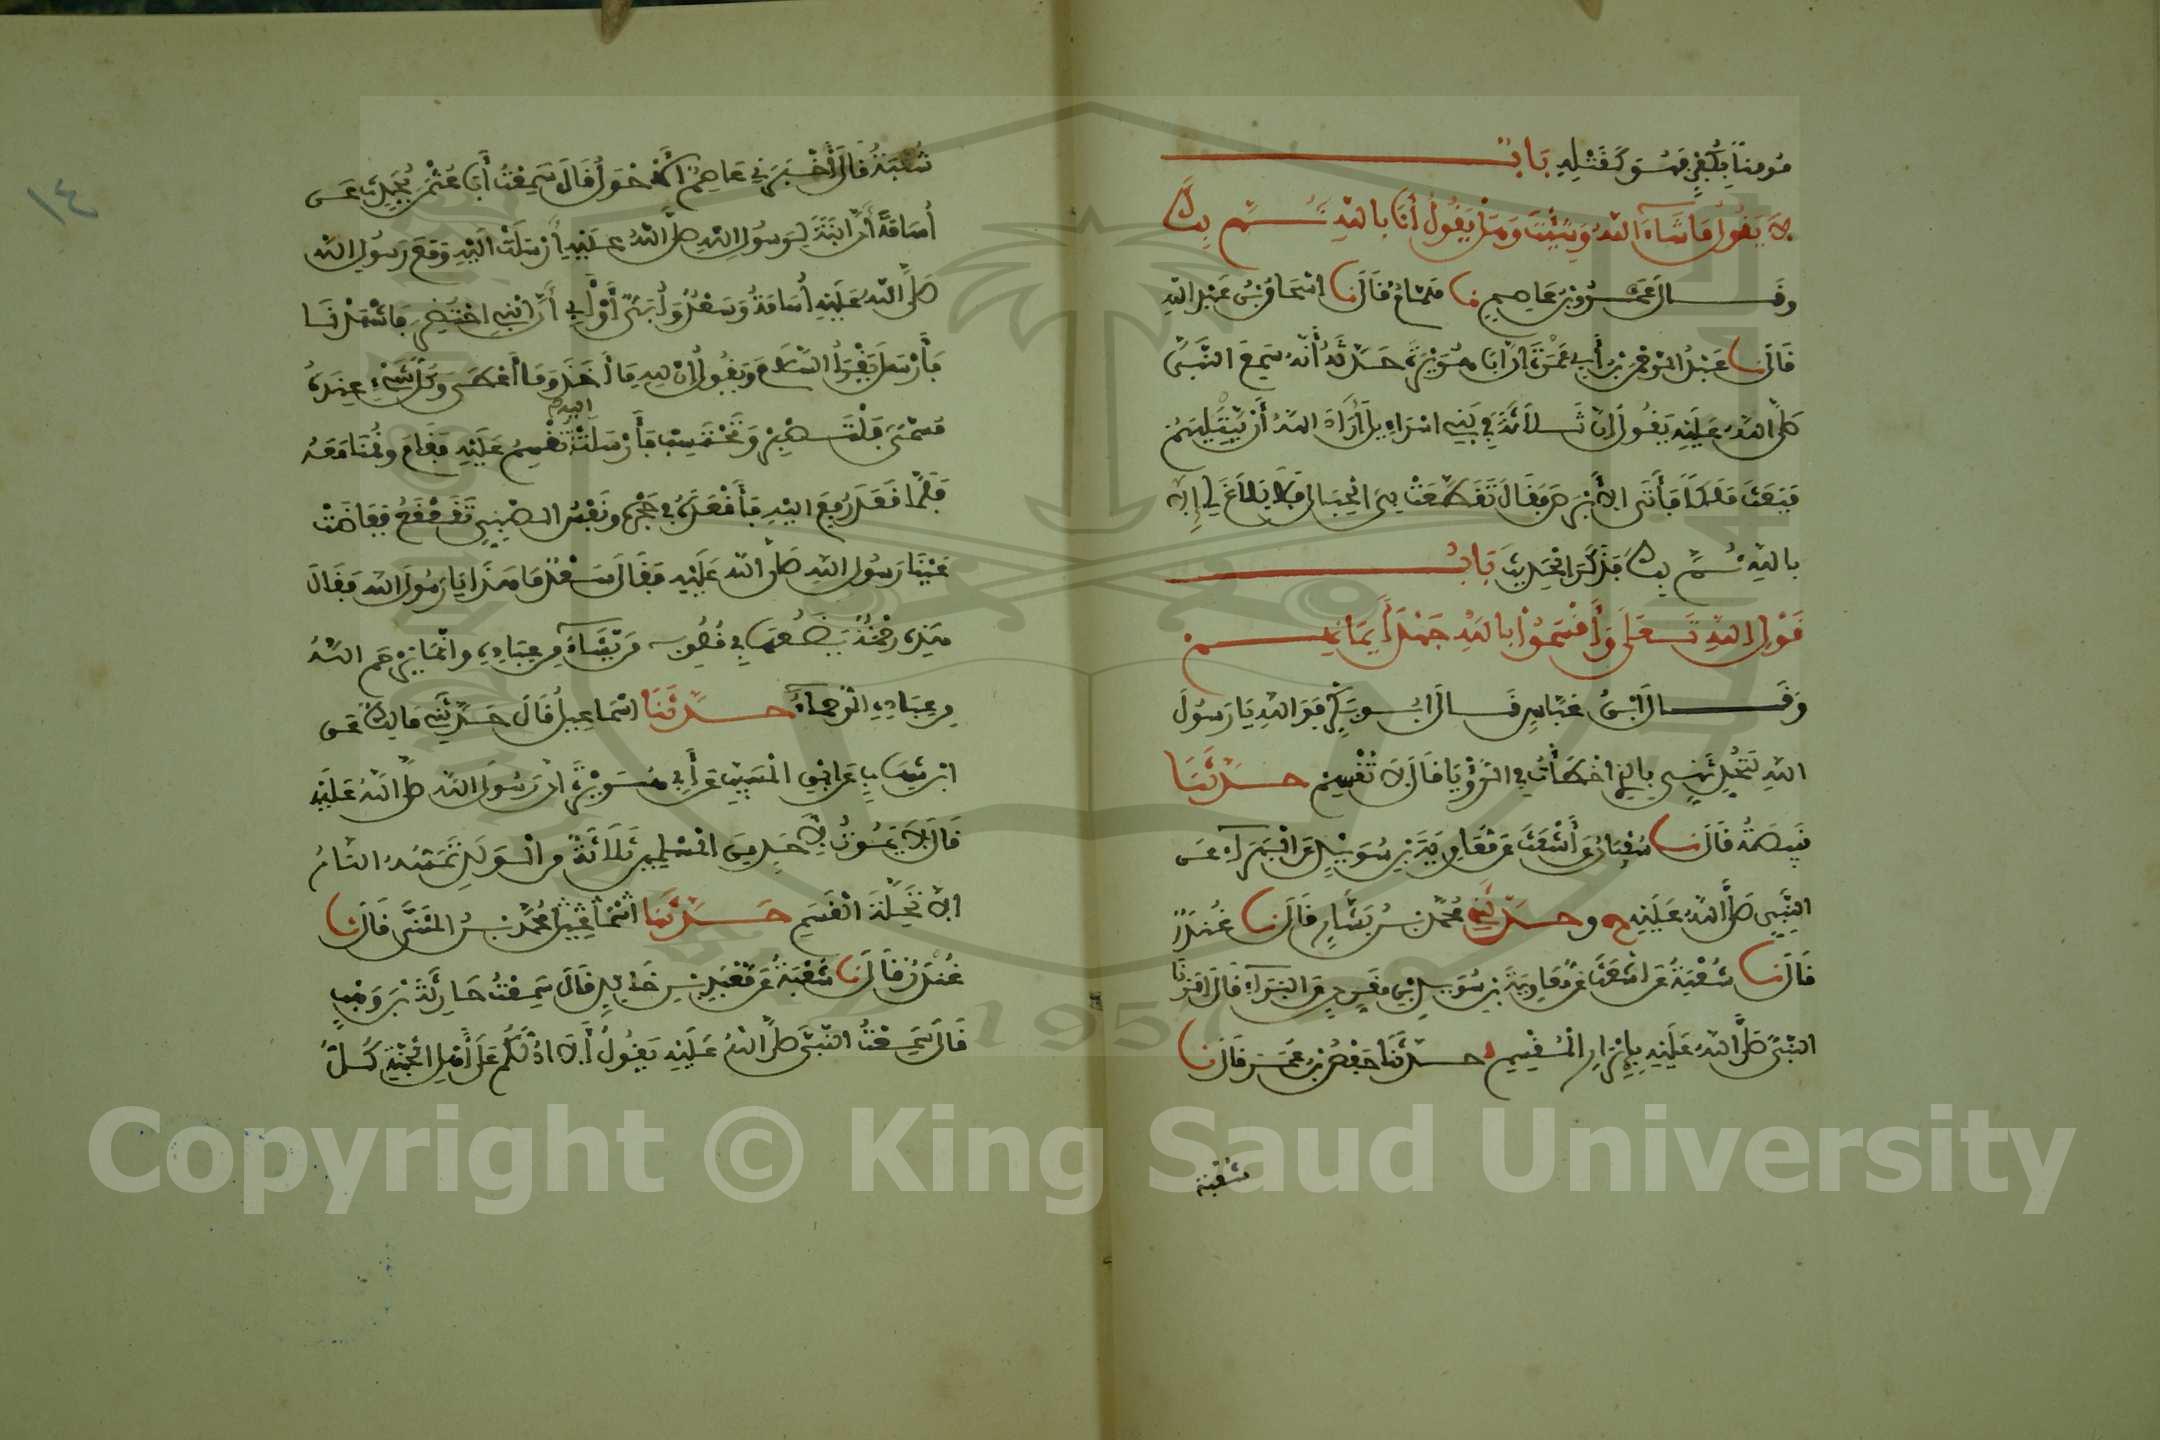 مُومِناً بِكُفْرٍ فَهُوَ كَقَتْلِهِ بَابٌ
لاَ يَقُولُ مَا شَآءَ اللهُ وَشِئْتَ وَهَلْ يَقُولُ أَنَا بِاللهِ ثُمَّ بِكَ
وقَالَ عَمْرُو بنُ عَاصِمٍ نا هَمَّامٌ قَالَ نا إِسْحَاقُ بْنُ عَبْدِ اللهِ
قَالَ نا عَبْدُ الرَّحْمٰنِ بْنُ أَبِي عَمْرَةَ أَنَّ أَبَا هُرَيْرَةَ حَدَّثَهُ أَنَّهُ سَمِعَ النَّبِيَّ
صَلَّى اللهُ عَلَيْهِ يَقُولُ إِنَّ ثَلاَثَةً فِي بَنِي اسْرَاءِيلَ أَرَادَ اللهُ أَنْ يَبْتَلِيَهُمْ
فَبَعَثَ مَلَكاً فَأَتَى الأَبْرَصَ فَقَالَ تَقَطَّعَتْ بِيَ الْحِبَالُ فَلاَ بَلاَغَ لِي إِلاَّ
بِاللهِ ثُمَّ بِكَ فَذَكَرَ الْحَدِيثَ بَابُ
قَوْلِ اللهِ تَعَلَى وَأَقْسَمُوا بِاللهِ جَهْدَ أَيْمَانِهِمْ
وَقَالَ ابْنُ عَبَّاسٍ قَالَ أَبُو بَكْرٍ فَوَاللهِ يَا رَسُولَ
اللهِ لَتُحَدِّثَنِّي بِالَّذِي أَخْطَأْتُ فِي الرُّؤْيَا قَالَ لاَ تُقْسِمْ حَدَّثَنَا
قَبِيصَةُ قَالَ نا سُفْيَانُ عَنْ أَشْعَثَ عَنْ مُعَاوِيَةَ بْنِ سُوَيْدٍ عَنِ الْبَرَآءِ عَنِ
النَّبِيِّ صَلَّى اللهُ عَلَيْهِ ح وحَدَّثَنِي مُحَمَّدُ بْنُ بَشَّارٍ قَالَ نا غُنْدَرٌ
قَالَ نا شُعْبَةُ عَنْ أَشْعَثَ عَنْ مُعَاوِيَةَ بْنِ سُوَيْدِ بْنِ مُقَرِّنٍ عَنِ الْبَرَآءِ قَالَ أَمَرَنَا
النَّبِيُّ صَلَّى اللهُ عَلَيْهِ بِإِبْرَارِ الْمُقْسِمِ حَدَّثَنَا حَفْصُ بْنُ عُمَرَ قَالَ نا
شعبة
١٤
شُعْبَةُ قَالَ أَخْبَرَنِي عَاصِمٌ الأَحْوَلُ قَالَ سَمِعْتُ أَبَا عُثْمَانَ يُحَدِّثُ عَنْ
أُسَامَةَ أَنَّ ابْنَةً لِرَسُولِ اللهِ صَلَّى اللهُ عَلَيْهِ أَرْسَلَتْ إِلَيْهِ وَمَعَ رَسُولِ اللهِ
صَلَّى اللهُ عَلَيْهِ أُسَامَةُ وَسَعْدٌ وَأُبَيٌّ أَوْ أَبِي أَنَّ ابْنِي احْتُضِرَ فَاشْهَدْنَا
فَأَرْسَلَ يَقْرَأُ السَّلاَمَ وَيَقُولُ إِنَّ لِلهِ مَا أَخَذَ وَمَا أَعْطَى وَكُلُّ شَيْءٍ عِنْدَهُ
مُسَمًّى فَلْتَصْبِرْ وَتَحْتَسِبْ فَأَرْسَلَتْ إليه تُقْسِمُ عَلَيْهِ فَقَامَ وقُمْنَا مَعَهُ
فَلَمَّا قَعَدَ رُفِعَ إِلَيْهِ فَأَقْعَدَهُ فِي حَجْرِهِ ونَفْسُ الصَّبِيِّ تَقَعْقَعُ فَفَاضَتْ
عَيْنَا رَسُولِ اللهِ صَلَّى اللهُ عَلَيْهِ فَقَالَ سَعْدٌ مَا هَذَا يَا رَسُولَ اللهِ فَقَالَ
هَذِهِ رَحْمَةٌ يَضَعُهَا فِي قُلُوبِ مَنْ يَّشَآءُ مِنْ عِبَادِهِ وانَّمَا يَرْحَمُ اللهُ
مِنْ عِبَادِهِ الرُّحَمَآءَ حَدَّثَنَا إِسْمَاعِيلُ قَالَ حَدَّثَنِي مَالِكٌ عَنِ
ابْنِ شِهَابٍ عَنِ ابْنِ الْمُسَيِّبِ عَنْ أَبِي هُرَيْرَةَ أَنَّ رَسُولَ اللهِ صَلَّى اللهُ عَلَيْهِ
قَالَ لاَ يَمُوتُ لأَحَدٍ مِنَ الْمُسْلِمِينَ ثَلاَثَةٌ مِنَ الْوَلَدِ تَمَسُّهُ النَّارُ
إِلاَّ تَحِلَّةَ الْقَسَمِ حَدَّثَنَا مُحَمَّدُ بْنُ الْمُثَنَّى قَالَ نا
غُنْدَرٌ قَالَ نا شُعْبَةُ عَنْ مَعْبَدِ بْنِ خَالِدٍ قَالَ سَمِعْتُ حَارِثَةَ بْنَ وَهْبٍ
قَالَ سَمِعْتُ النَّبِيَّ صَلَّى اللهُ عَلَيْهِ يَقُولُ أَلاَ أَدُلُّكُمْ عَلَى أَهْلِ الْجَنَّةِ كُلُّ
1957
Copyright © King Saud University